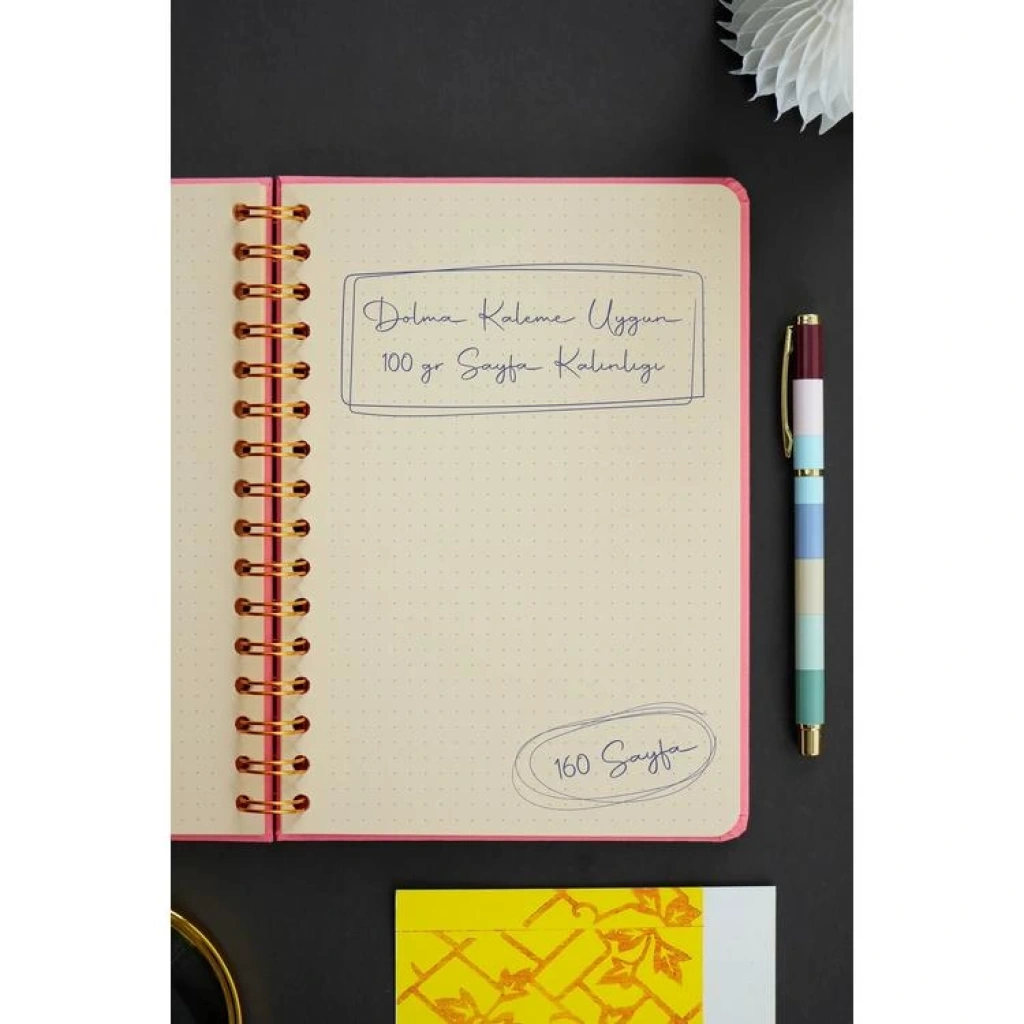 Dolma Kaleme Uygun
100 gr Sayfa Kalınlıgı
160 Sayfa